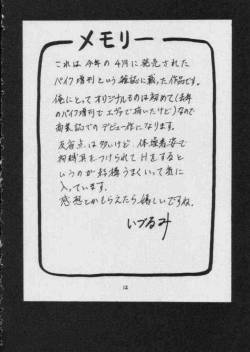 メモリー
これは今年の4月に発売された
パイク増刊という雑誌に載った作品です。
俺にとってオリジナルものは初めて(去年
のパイク増刊もエヴァで描いたけど)なので
商業誌でのデビュー作になります。
反省点は多いけど、体操着姿で
拘束具をつけられてHをすると
いうのが結構うまくいって気に
入っています。
感想とかもらえたら嬉しいですね。
いづるみ
12